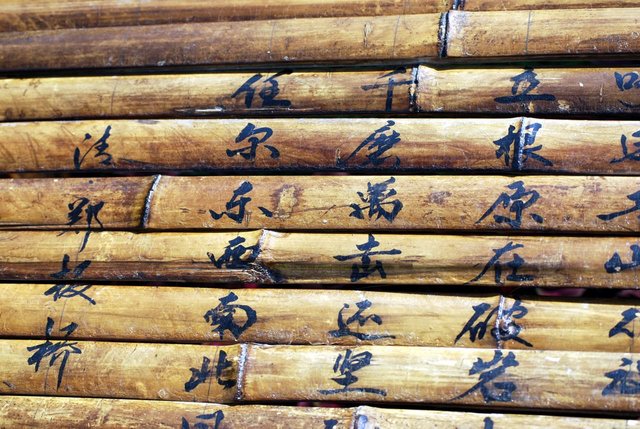 山
立根原在破岩
千磨萬击还坚
任尔东西南北
清郑板桥